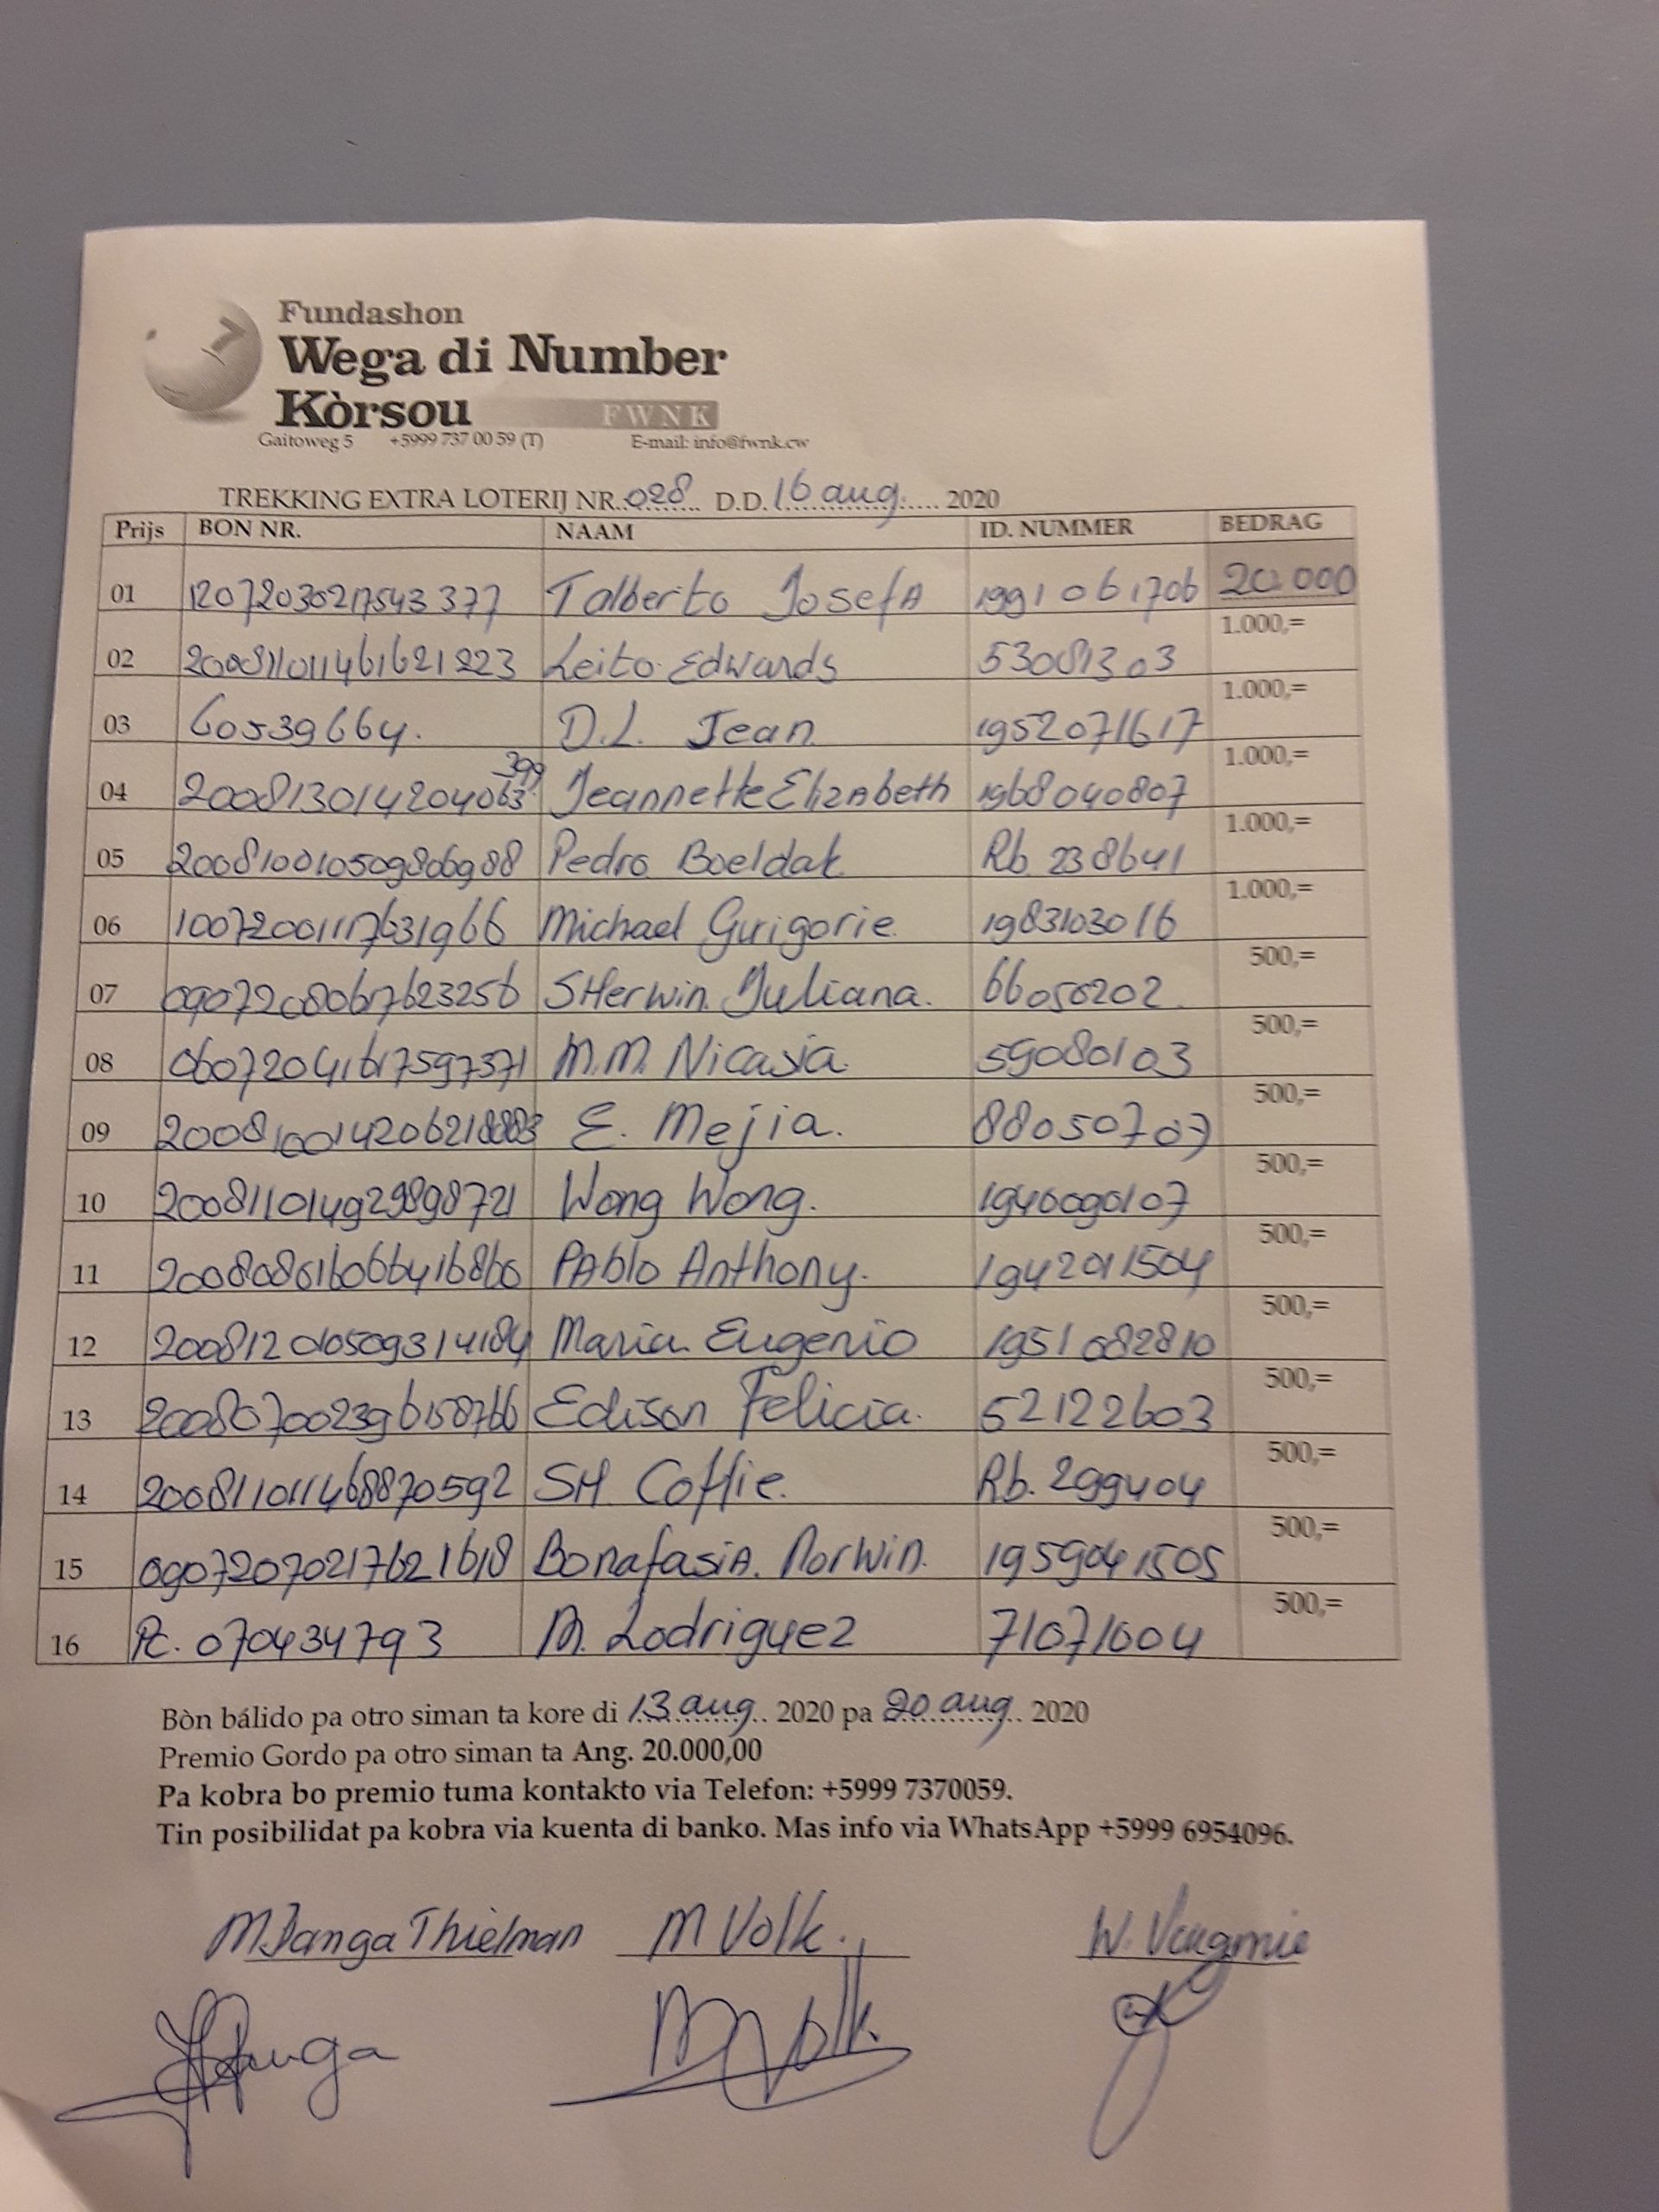 Fundashon
Wega di Number
Kòrsou FWNK
Gaitoweg 5 +5999 737 00 59 (T) E-mail: info@fwnk.cw
TREKKING EXTRA LOTERIJ NR. 028 D.D. 16 aug. 2020
Prijs BON NR. NAAM ID. NUMMER BEDRAG
01 12072030217543377 Talberto JosefA 1991061706 20.000
02 200811011461621223 Leito Edwards 53081303 1.000,=
03 60539664. D.L. Jean 1952071617 1.000,=
399
04 200813014204063 Jeannette ElizAbeth 1968040807 1.000,=
05 200810010509806988 Pedro Boeldak Rb 238641 1.000,=
06 10072001117631966 Michael Gurigorie 1983103016 1.000,=
07 0907208067623256 SHerwin Juliana. 66050202 500,=
08 06072041617597371 M.M. Nicasia 59080103 500,=
09 E. Mejia. 88050707 500,=
10 200811014929898721 Wong Wong. 1940090107 500,=
11 200808616066416860 PAblo Anthony. 1942011504 500,=
12 200812010509314184 Maria Eugenio 1951082810 500,=
13 200807002396158766 Edison Felicia. 52122603 500,=
14 200811011468870592 SH Coffie. Rb. 299404 500,=
15 09072070217621618 BonafasiA. Norwin. 1959041505 500,=
16 Pc. 070434793 M. Lodriguez 71071004 500,=
Bòn bálido pa otro siman ta kore di 13 aug 2020 pa 20 aug 2020
Premio Gordo pa otro siman ta Ang. 20.000,00
Pa kobra bo premio tuma kontakto via Telefon: +5999 7370059.
Tin posibilidat pa kobra via kuenta di banko. Mas info via WhatsApp +5999 6954096.
M. Janga Thielman M Volk. W.
Janga M Volk.